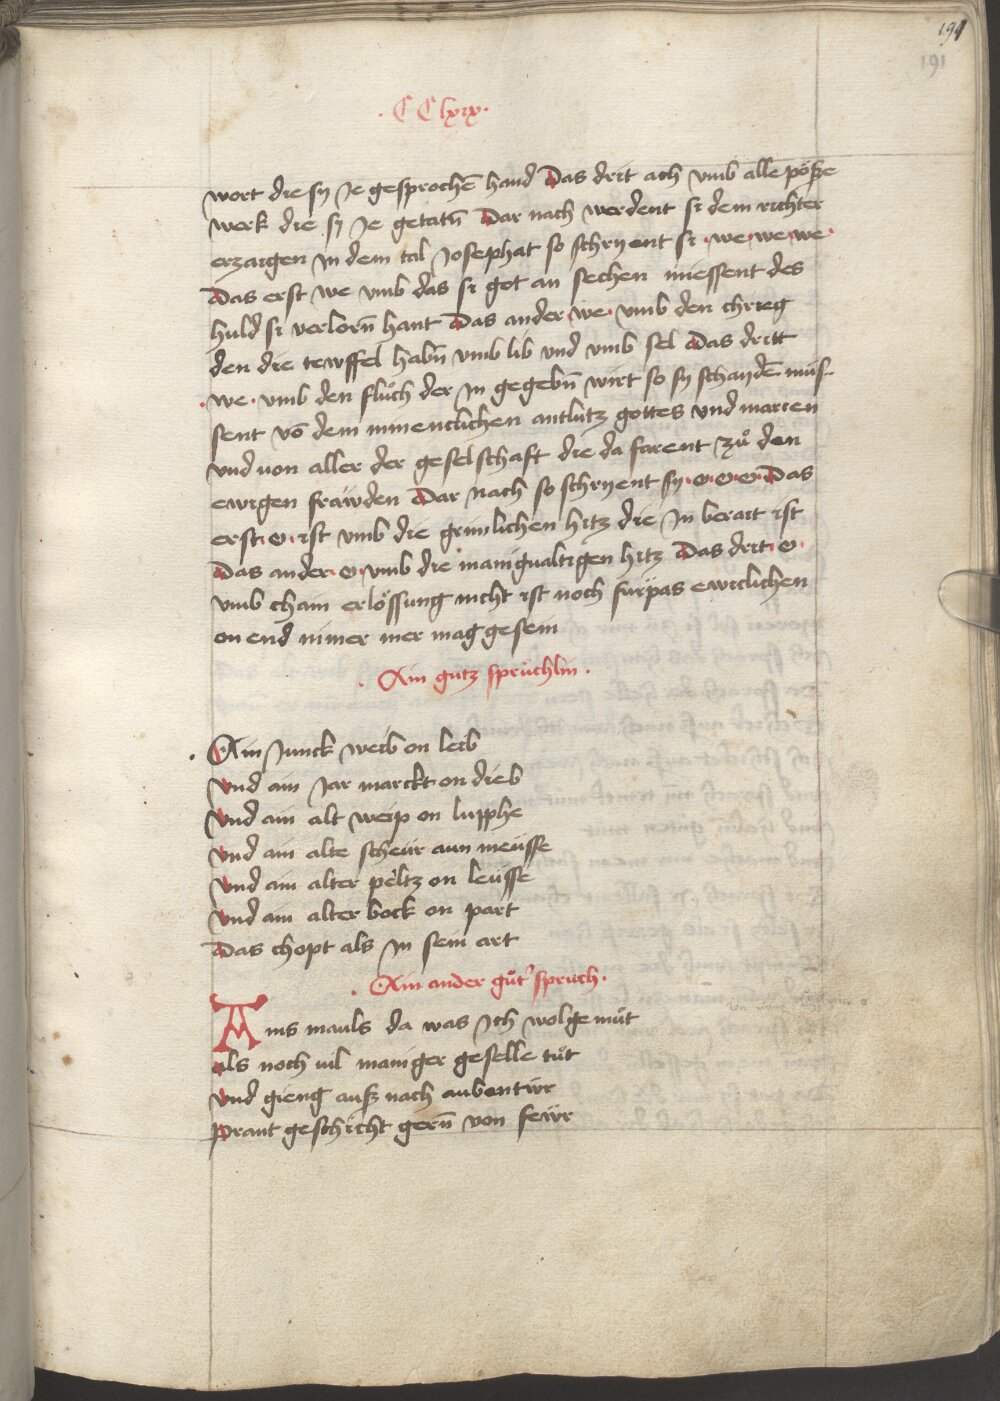 191
191
· CClxix ·
wort die sy Je gesprochē hand Das drit ach vmb alle pöße
werk die sy Je getatn̄ Dar nach werdent si dem richter
erzaigen In dem tal Josephat so schryent si · we · we · we ·
Das erst we vmb das si got an sechen miessent des
huld si verlorn̄ hant Das ander we · vmb den chrieg
den die tewffel habn̄ vmb lib vnd vmb sel Das dritt
· we · vmb den fluͦch der In gegebn̄ wirt so sy schaydē müs
sent vō dem minenclichen antlütz gottes vnd marien
vnd uon aller der geselschaft die da farent zuͦ den
ewigen fräwden Dar nach so schryent sy · o · o · o · Das
erst · o · ist vmb die grimlichen hitz die In berait ist
Das ander · o · vmb die manigualtigen hitz Das drit · o ·
vmb chain erlössung nicht ist noch fürpas ewiclichen
on end nimer mer mag gesein
· Ain gutz sprüchlin ·
· Ain Junck weib on leib
Vnd ain Jar marckt on dieb
Vnd ain alt weip on lupphe
Vnd ain alte scheür aun meüsse
Vnd ain alter peltz on leüsse
Vnd ain alter bock on part
Das chopt als In sein art
· Ain ander guͦt' spruch ·
Ains mauls da was Ich wolgemuͦt
als noch uil maniger geselle tuͦt
Vnd gieng auß nach aubentür
Praut geschicht gern̄ von fewr